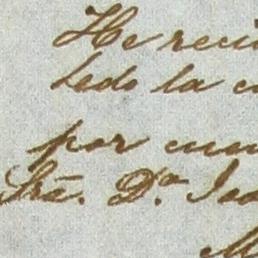 He reci
ledo la c
por cuen
Sra. Da. Isa
M